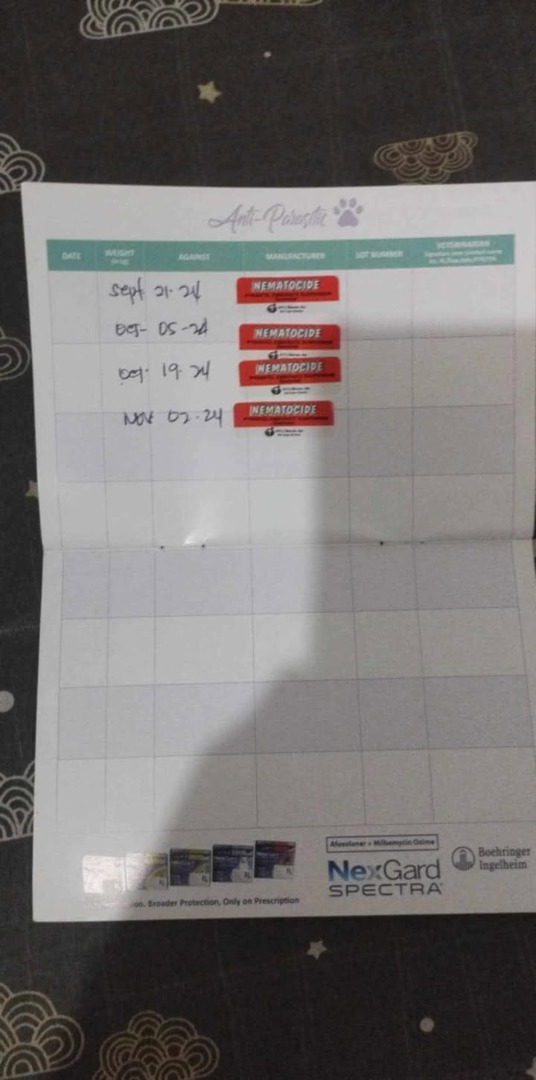 Anti-Parasitic
DATE WEIGHT AGAINST MANUFACTURER LOT NUMBER VETERINARIAN
Sept 21-24 NEMATOCIDE
Oct- 05-24 NEMATOCIDE
Oct- 19-24 NEMATOCIDE
Nov 02-24 NEMATOCIDE
Afoxolaner + Milbemycin Oxime
NexGard
SPECTRA
Boehringer
Ingelheim
Broader Protection, Only on Prescription